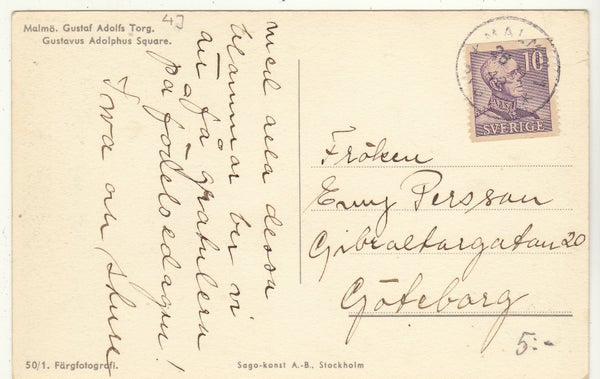 Malmö. Gustaf Adolfs Torg.
Gustavus Adolphus Square.
43
med alla dessa
blommor ber vi
att få gratulera
på födelsedagen!
Ewa och Sture
MALMÖ
10
SVERIGE
Fröken
Emy Persson
Gibraltargatan 20
Göteborg
5:-
50/1. Färgfotografi.
Sago-konst A.-B., Stockholm